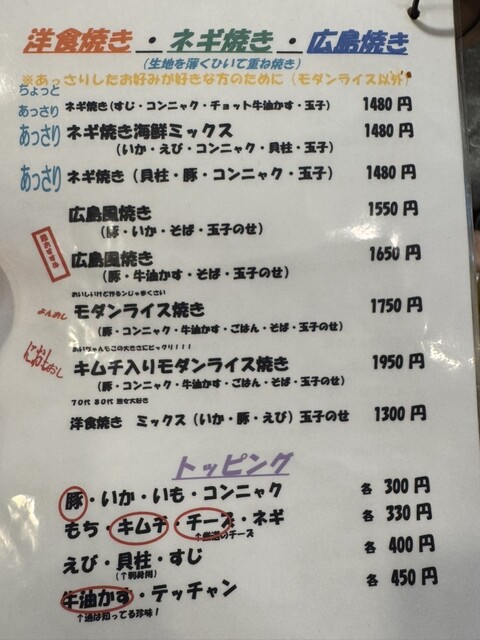 洋食焼き・ネギ焼き・広島焼き
(生地を薄くひいて重ね焼き)
※あっさりしたお好みが好きな方のために(モダンライス以外)
ちょっと
あっさり ネギ焼き(すじ・コンニャク・チョット牛油かす・玉子) 1480円
あっさり ネギ焼き海鮮ミックス 1480円
(いか・えび・コンニャク・貝柱・玉子)
あっさり ネギ焼き(貝柱・豚・コンニャク・玉子) 1480円
広島風焼き 1550円
(豚・いか・そば・玉子のせ)
広島風焼き 1650円
(豚・牛油かす・そば・玉子のせ)
おいしいけど作るンじゃまくさい
モダンライス焼き 1750円
(豚・コンニャク・牛油かす・ごはん・そば・玉子のせ)
おいちゃんもこの大きさにビックリ!!!
キムチ入りモダンライス焼き 1950円
(豚・コンニャク・牛油かす・ごはん・そば・玉子のせ)
70代80代 大好き
洋食焼き ミックス(いか・豚・えび)玉子のせ 1300円
トッピング
豚・いか・いも・コンニャク 各 300円
もち・キムチ・チーズ・ネギ 各 330円
↑厳選のチーズ
えび・貝柱・すじ 各 400円
(↑刺身用)
牛油かす・テッチャン 各 450円
↑通は知ってる珍味!